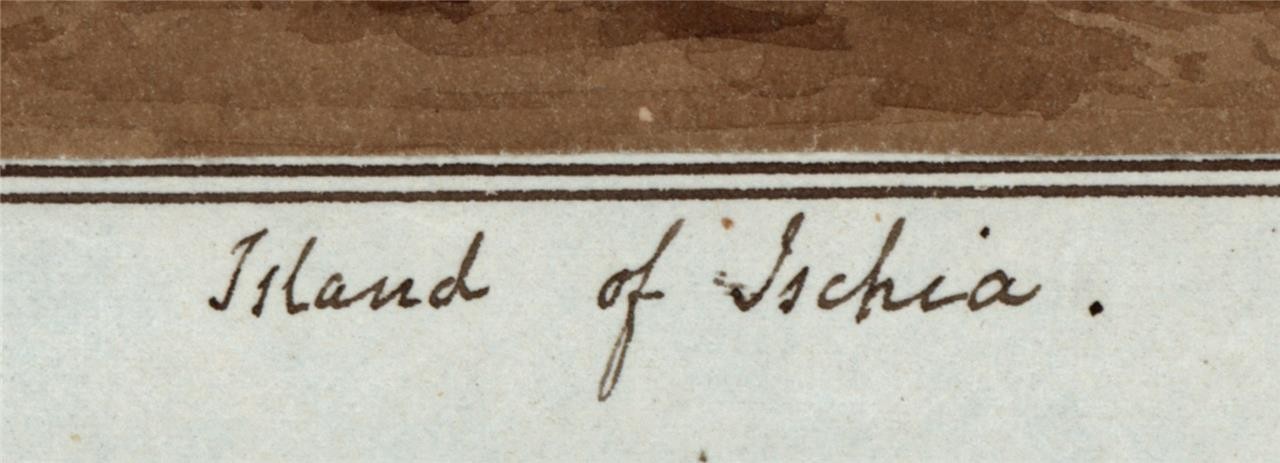 Island of Ischia.